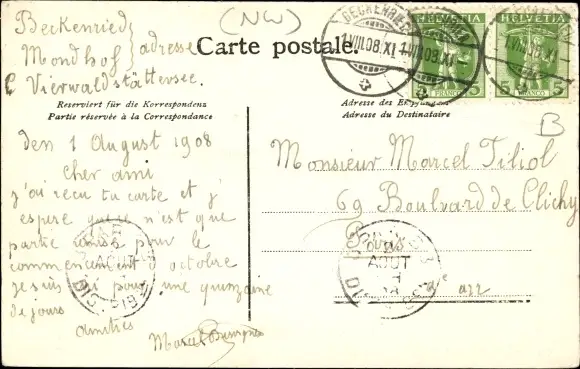 Beckenried
Mondhof
Vierwaldstättersee.
adresse
(NW)
Carte postale.
BECKENRIED
1.VIII.08.XI
1.VIII.08.XI
HELVETIA
HELVETIA
5 FRANCO 5
FRANCO 5
B
Reserviert für die Korrespondenz
Partie réservée à la Correspondance
Adresse des Empfängers
Adresse du Destinataire
den 1 August 1908
Cher ami
j'ai reçu ta carte et j'
espère que ce n'est que
partie remise pour le
commencement d'octobre
je suis ici pour une quinzaine
de jours
amitiés
Marcel
Monsieur Marcel Tiliol
69 Boulvard de Clichy
Paris
e arr
AOUT
DISTRIB
AOUT